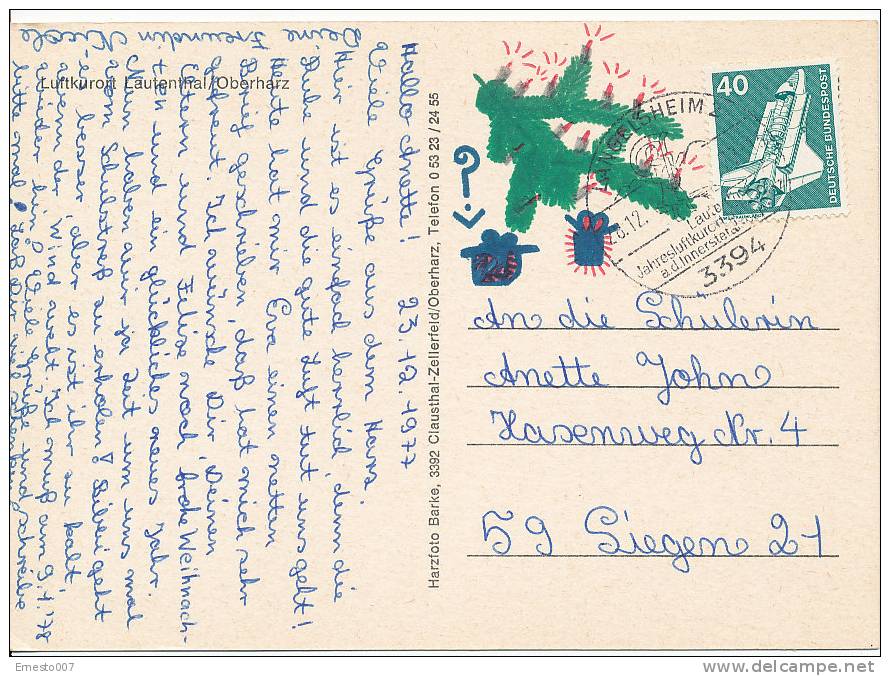 Luftkurort Lautenthal/Oberharz
Hallo Anette! 23.12.1977
Viele Grüße aus dem Harz.
Hier ist es einfach herrlich, denn die
Ruhe und die gute Luft tut uns gut!
Heute hat mir Eva einen netten
Brief geschrieben, daß hat mich sehr
gefreut. Ich wünsche Dir, Deinen
Eltern und Felise noch frohe Weihnach-
ten und ein glückliches neues Jahr.
Nun haben wir ja Zeit um uns mal
vom Schulstreß zu erholen! geht
es besser, aber es ist ihr zu kalt,
wenn der Wind weht. Ich muß am 9.1.'78
wieder hin. Viele Grüße und schreibe
bitte mal!
Deine Freundin Nicole
Harzfoto Barke, 3392 Clausthal-Zellerfeld/Oberharz, Telefon 0 53 23 / 24 55
?
40
DEUTSCHE BUNDESPOST
LANGELSHEIM 2
.12.
Jahresluftkurort
a.d.Innerste
3394
An die Schülerin
Anette John
Hasenweg Nr. 4
59 Siegen 21
Ernesto007
delcampe.net